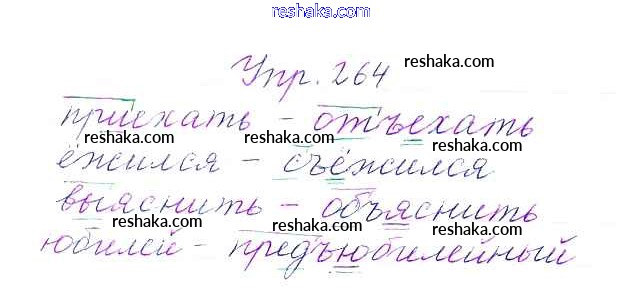 reshaka.com
Упр. 264 reshaka.com
приехать - отъехать
reshaka.com reshaka.com reshaka.com
ёжился - съёжился
выяснить - объяснить
reshaka.com reshaka.com reshaka.com
юбилей - предъюбилейный